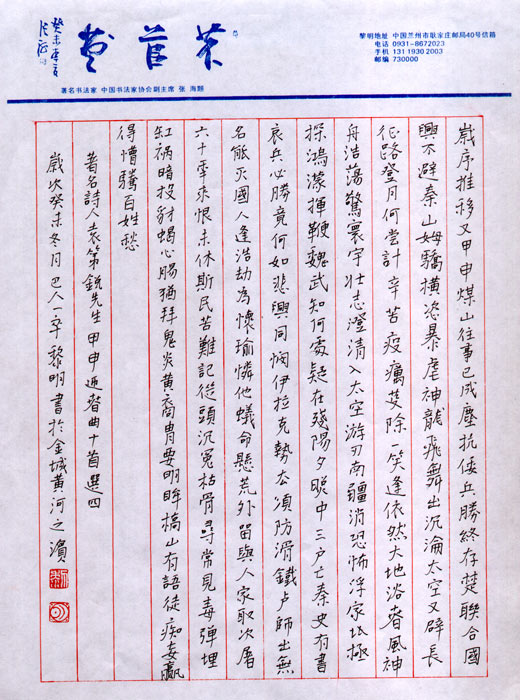 著名书法家 中国书法家协会副主席 张 海题
黎明地址 中国兰州市耿家庄邮局40号信箱
电话 0931-8672023
手机 131 1930 2003
邮编 730000
歲序推移又甲申煤山往事已成塵抗倭兵勝終存楚聯合國
興不避秦山姆驕横恣暴虐神龍飛舞出沉淪太空又辟長
征路登月何嘗計辛苦疫癘芟除一笑逢依然大地浴春風神
舟浩蕩驚寰宇壮志澄清入太空游刃南疆消恐怖浮家北極
探鴻濛揮鞭魏武知何處疑在殘陽夕晚中三户亡秦史有書
哀兵必勝竟何如悲興同悯伊拉克勢去須防滑鐵卢師出無
名能灭國人逢浩劫為懷瑜憐他蟻命懸荒外留與人家取次屠
六十季來恨未休斯民苦難記從頭沉冤枯骨尋常見毒彈埋
缸禍暗投豺蝎心腸猶拜鬼炎黄裔胄要明眸橋山有語徒痴妄贏
得懵騰百姓愁
著名詩人袁第鋭先生甲申迎春曲十首選四
歲次癸未冬月巴人一平黎明書於金城黄河之濱